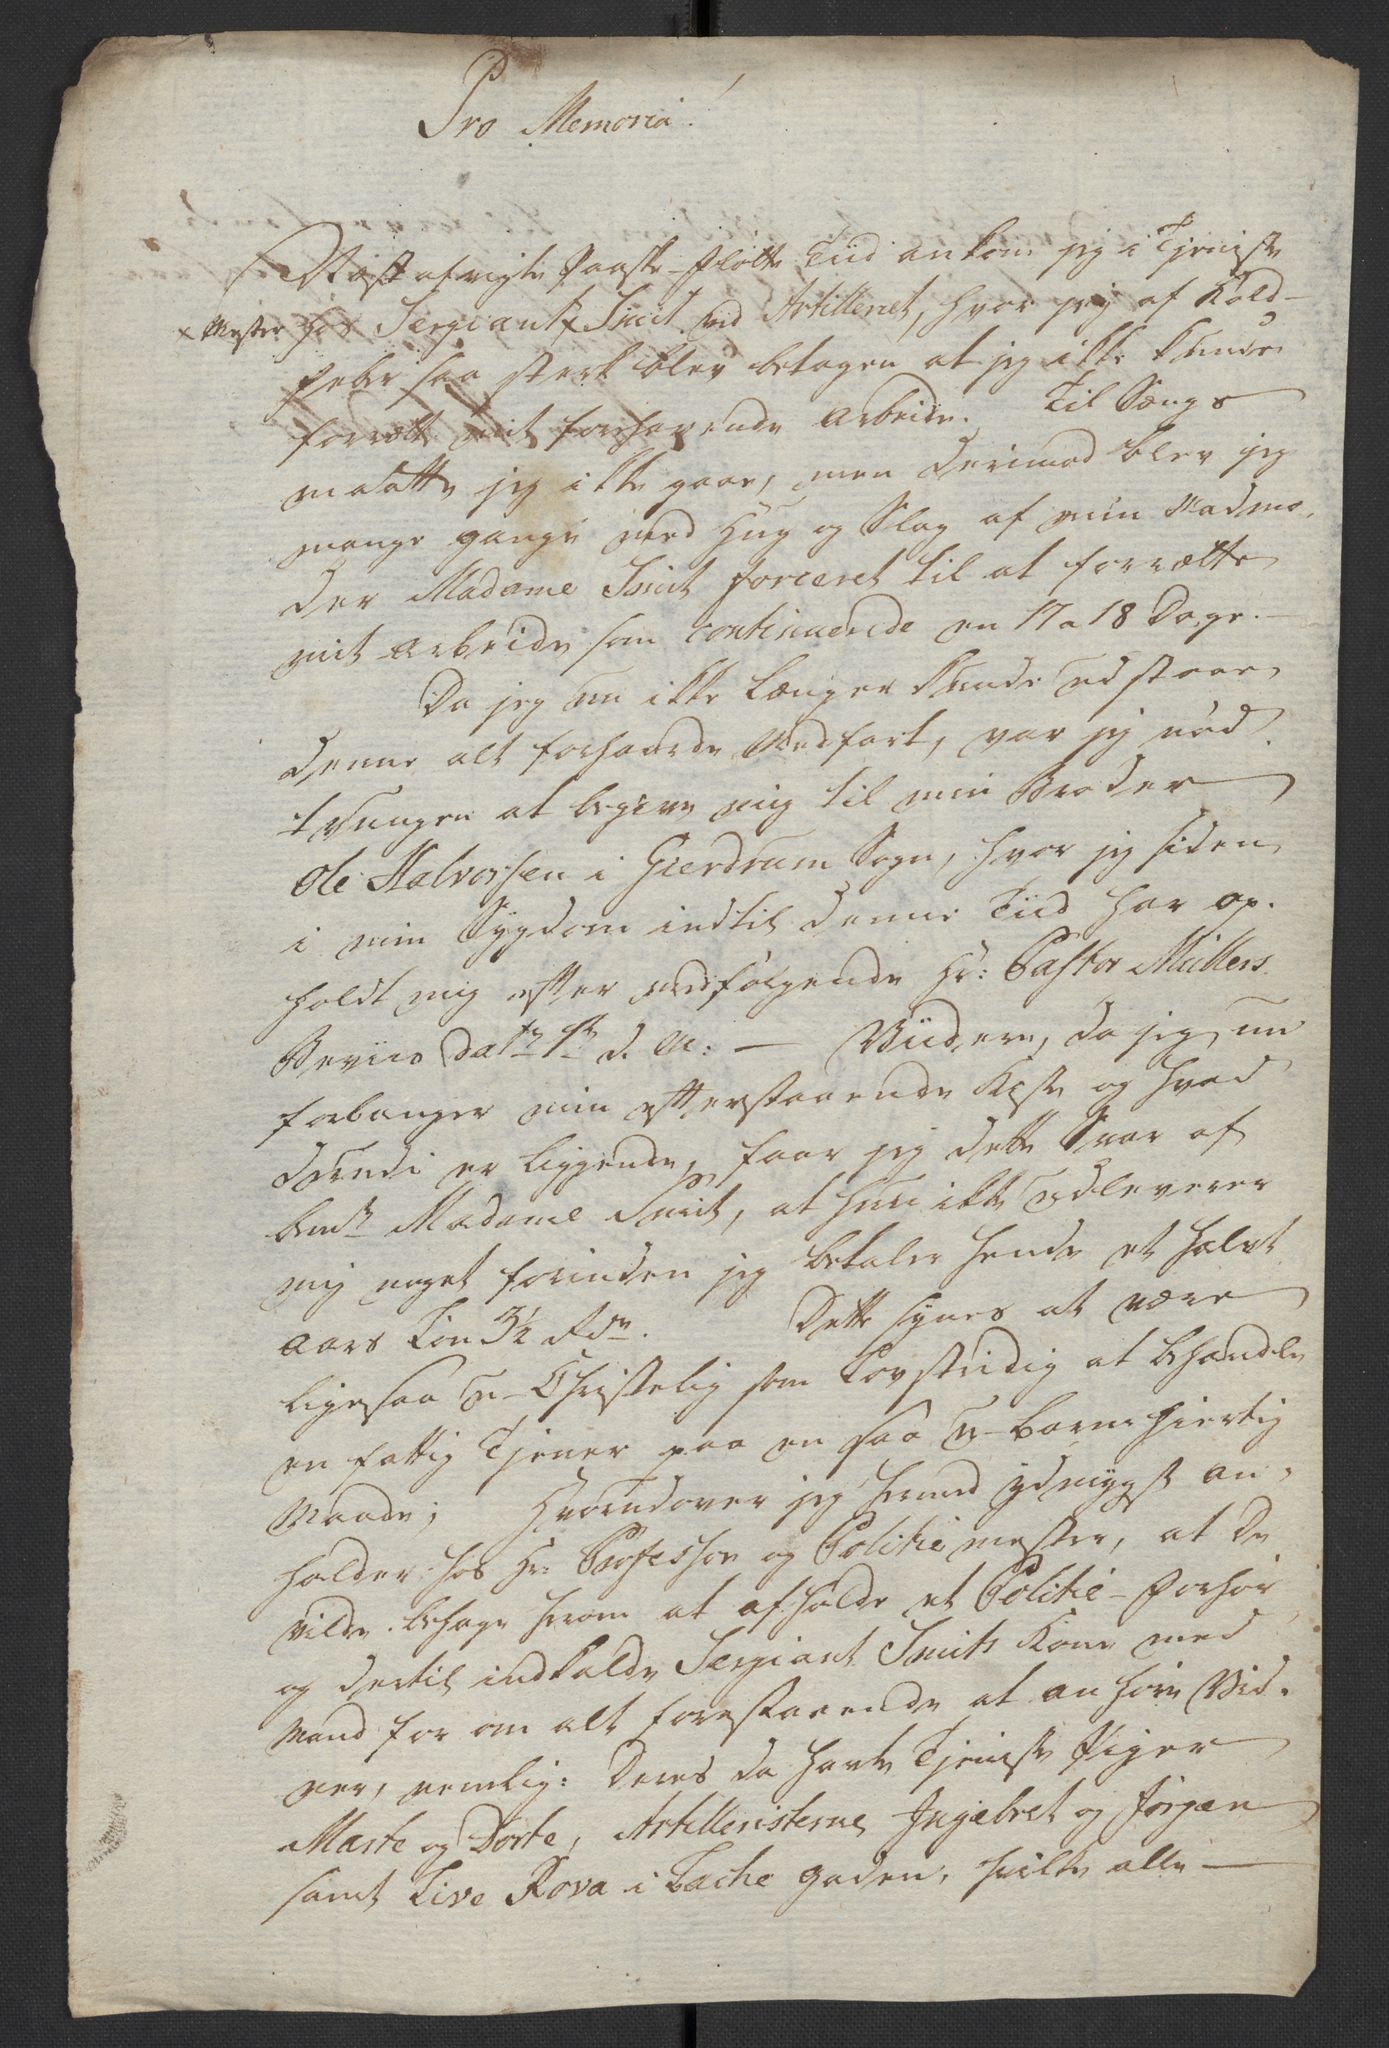 Pro Memoria!
Næst afvigte Paaske-Flytte Tiid ankom jeg i Tjeniste
x Mester hos Sergiant x Smit ved Artilleriet, hvor jeg af Kold-
feber saa sterk blev betagen at jeg ikke kunde
forrette mit forhavende Arbeide. Til Sængs
maatte jeg ikke gaae, men derimod blev jeg
mange gange med Hug og Slag af min Madmo-
der Madame Smit forceret til at forrætte
mit Arbeide som continuerede en 17 a 18 Dage. –
Da jeg nu ikke længer kunde udstaae
denne alt forhaarde Medfart, var jeg nød
tvungen at begive mig til min Broder
Ole Halvorsen i Gierdrum Sogn, hvor jeg siden
i min Sygdom indtil denne Tiid har op-
holdt mig efter vedfølgende Hr: Pastor Müllers
Beviis dat: 1ste d. M: — Viidere, da jeg nu
forlanger min efterstaaende Kiste og hvad
derudi er liggende, faar jeg dette Svar af
bemte Madame Smit, at hun ikke udleverer
mig noget forinden jeg betaler hende et halvt
Aars Løn 3½ Rdr. Dette synes at være
ligesaa u-Christelig som Lovstridig at behandle
en fattig Tjener paa en saa u-barmhiertig
Maade; Hvorudover jeg hermed ydmygst an-
holder hos Hr: Professor og Politiemester, at De
vilde behage herom at afholde et Politie-Forhør
og dertil indkalde Sergiant Smits Kone med
Mand for om alt forestaaende at anhøre Vid-
ner, nemlig: Deres da havte Tjeniste Piger
Marte og Dorte, Artilleristerne Ingebret og Jørgen
samt Live Rova i Lache gaden, hvilke alle —